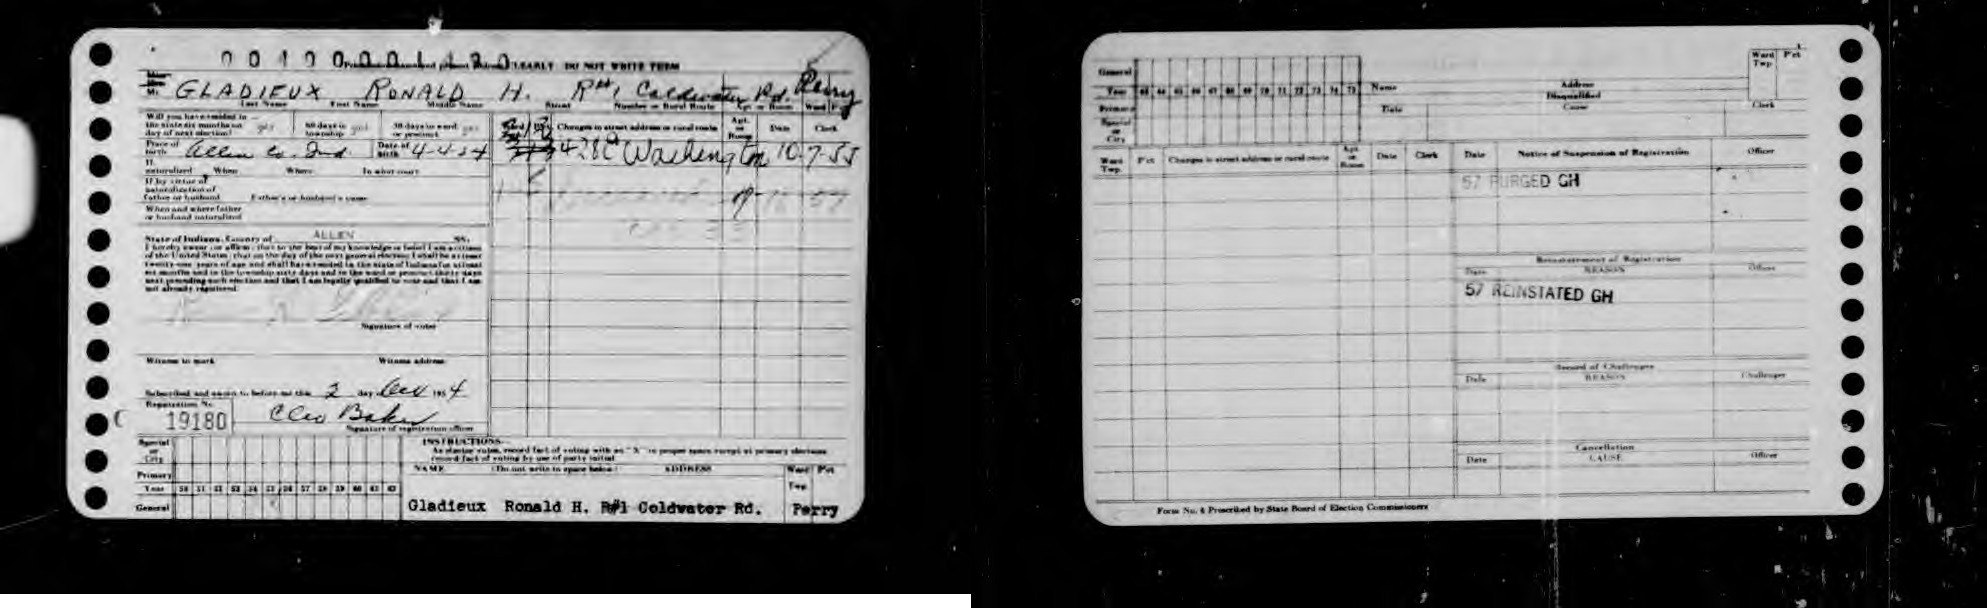 CLEARLY DO NOT WRITE TERM
Mr. GLADIEUX RONALD H. R#1 Coldwater Rd. Perry
Last Name First Name Middle Name Street Number or Rural Route Apt. or Room Ward Pct
Will you have resided in
the state six months on yes 60 days in yes 30 days in ward yes
day of next election? township or precinct
Place of birth Allen Co. Ind. Date of birth 4-4-24
If naturalized When Where In what court
If by virtue of
naturalization of
father or husband Father's or husband's name
When and where father
or husband naturalized
State of Indiana, County of ALLEN SS.
I hereby swear (or affirm) that to the best of my knowledge or belief I am a citizen
of the United States; that on the day of the next general election I shall be at least
twenty-one years of age and shall have resided in the state of Indiana for at least
six months and in the township sixty days and in the ward or precinct thirty days
next preceding such election and that I am legally qualified to vote and that I am
not already registered.
Signature of voter
Witness to mark Witness address
Subscribed and sworn to before me this 2 day 1954
Registration No.
19180 Cleo Baker
Signature of registration officer
Changes in street address or rural route Apt. or Room Date Clerk
Washington 10-7-55
57
Special
or
City
Primary
Year 50 51 52 53 54 55 56 57 58 59 60 61 62
General
INSTRUCTIONS
As elector votes, record fact of voting with an "X" in proper space except at primary elections
record fact of voting by use of party initial
NAME (Do not write in space below) ADDRESS Ward Pct
Twp.
Gladieux Ronald H. R#1 Coldwater Rd. Perry
General
Year 63 64 65 66 67 68 69 70 71 72 73 74 75
Primary
Special
or
City
Name Address Ward Twp. Pct
Disqualified
Date Cause Clerk
Ward Twp. Pct Changes in street address or rural route Apt. or Room Date Clerk
Date Notice of Suspension of Registration Officer
57 PURGED GH
Reinstatement of Registration
Date REASON Officer
57 REINSTATED GH
Record of Challenges
Date REASON Challenger
Cancellation
Date CAUSE Officer
Form No. 4 Prescribed by State Board of Election Commissioners